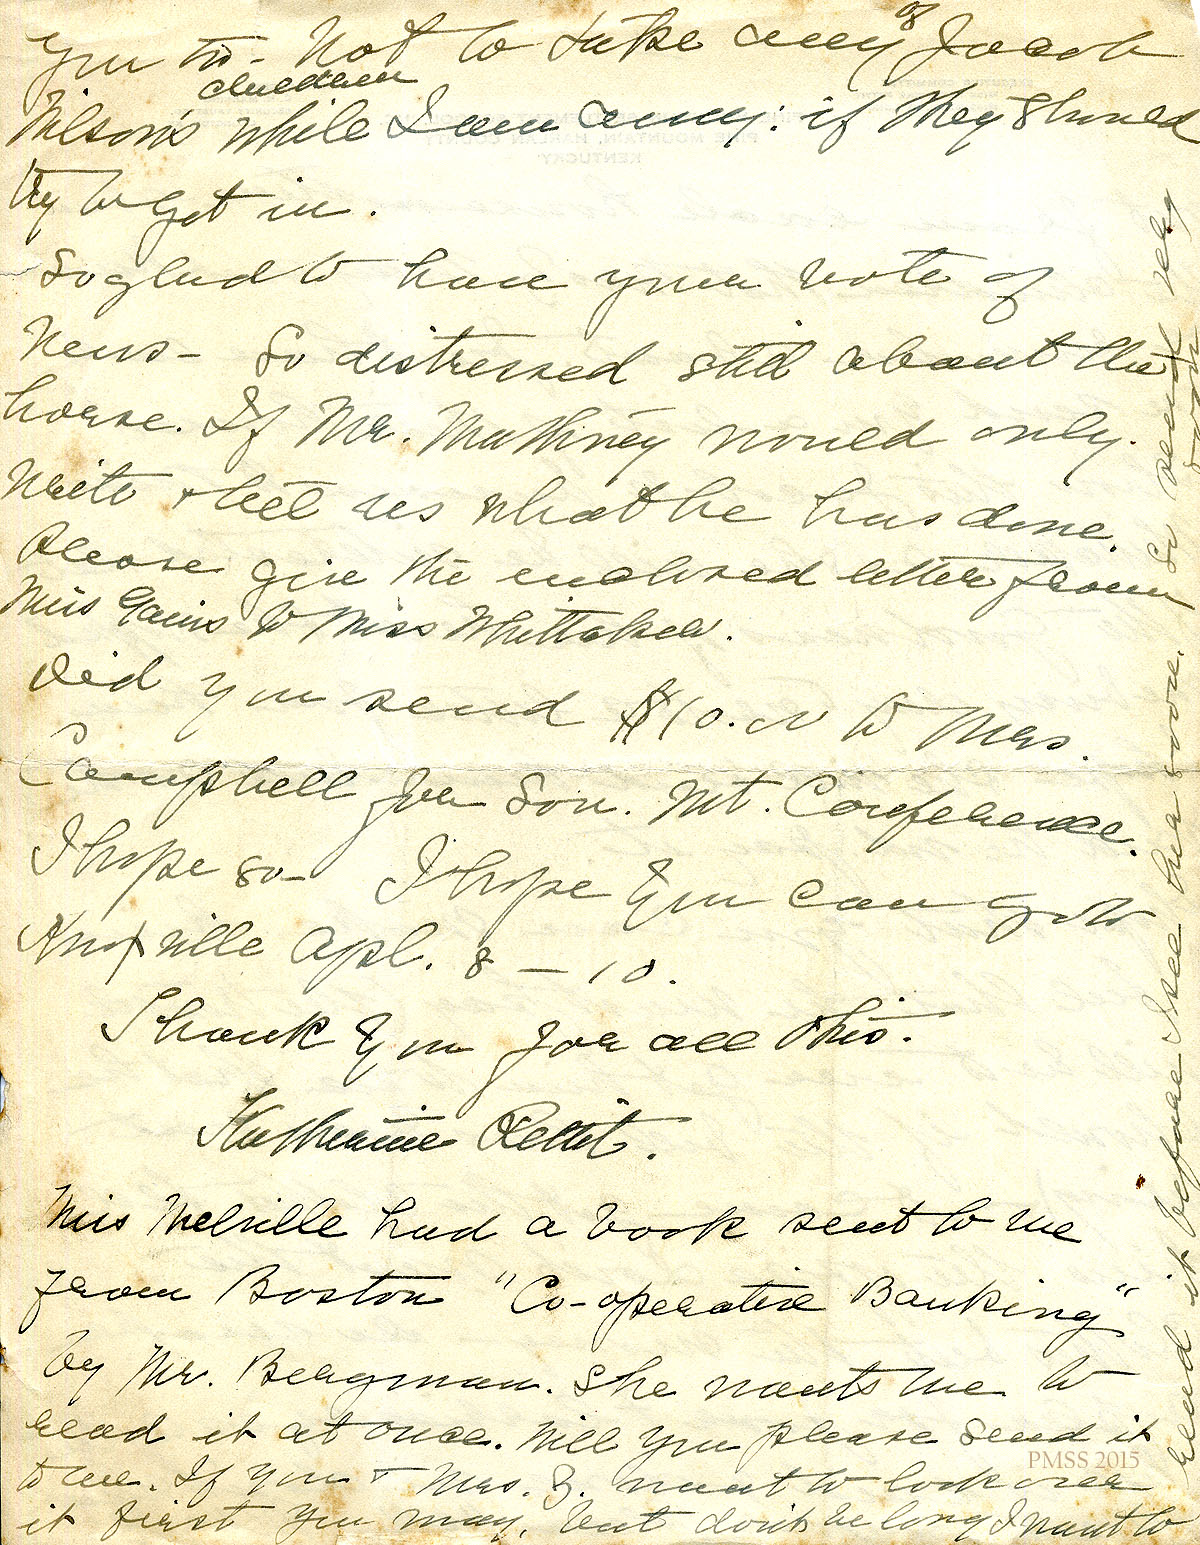 you to - Not to take any of Jacob
children
Wilson's while I am away: if they should
try to get in.
So glad to have your note of
News - So distressed still about the
horse. If Mr. Mathney would only
write & tell us what he has done.
Please give the enclosed letter from
Miss Gains to Miss Whittaker.
Did you send $10.00 to Mrs.
Campbell for Sou. Mt. Conference.
I hope so - I hope you can go to
Knoxville Apl. 8 - 10.
Thank you for all this.
Katherine Pettit.
Miss Melville had a book sent to me
from Boston "Co-operative Banking"
by Mr. Bergman. She wants me to
read it at once. Will you please send it
to me. If you & Mrs. Z. want to look over
it first you may, but don't be long I want to
read it before I see her soon. So send
PMSS 2015
MOUNTAIN, HARLAN COUNTY
KENTUCKY